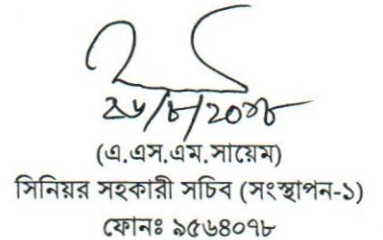 ২৬/৮/২০১৮
(এ.এস.এম.সায়েম)
সিনিয়র সহকারী সচিব (সংস্থাপন-১)
ফোনঃ ৯৫৬৪০৭৮